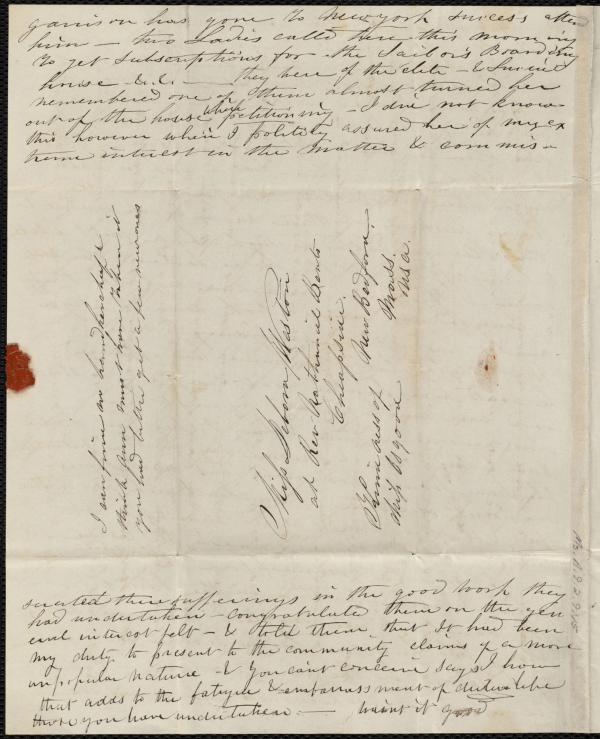 garrison has gone to Newyork success attend
him — two Ladies called here this morning
to get subscriptions for the Sailor's Boarding
house &c. — they were of the elite — & Susan
remembered one of them almost turned her
out of the house when petitioning — I did not know
this however when I politely assured her of my ex
treme interest in the matter & commis-
I can find no handkerchiefs
think Ann must have taken it
you had better get a few new ones
Miss Debora Weston
at Rev Nathaniel Bents
Cheapside.
New Bedford.
Mass.
USA.
Princess of
Ship Osgood
Ms.A.9.2.9.
serated there sufferings in the good work they
had undertaken — congratulated them on the gen
eral interest felt — & told them that it had been
my duty to present to the community claims of a more
unpopular nature — & you cant conceive says I how
that adds to the fatigue & embarrassment of duties like
those you have undertaken — — wasnt it good